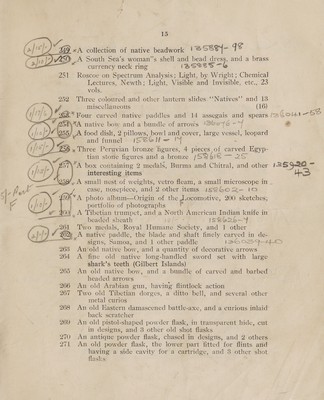 15
249 A collection of native beadwork 135889-98
250 A South Sea's woman's shell and bead dress, and a brass
currency neck ring 135885-6
251 Roscoe on Spectrum Analysis; Light, by Wright; Chemical
Lectures, Newth; Light, Visible and Invisible, etc., 23
vols.
252 Three coloured and other lantern slides "Natives" and 13
miscellaneous (16)
253 Four carved native paddles and 14 assegais and spears
254 A native bow and a bundle of arrows
255 A food dish, 2 pillows, bowl and cover, large vessel, leopard
and funnel
256 Three Peruvian bronze figures, 4 pieces of carved Egyp-
tian stone figures and a bronze
257 A box containing 2 medals, Burma and Chitral, and other 135920-
interesting items 43
258 A small nest of weights, vetro fleam, a small microscope in
case, nosepiece, and 2 other items
259 A photo album—Origin of the Locomotive, 200 sketches,
portfolio of photographs
260 A Tibetan trumpet, and a North American Indian knife in
beaded sheath
261 Two medals, Royal Humane Society, and 1 other
262 A native paddle, the blade and shaft finely carved in de-
signs, Samoa, and 1 other paddle
263 An old native bow, and a quantity of decorative arrows
264 A fine old native long-handled sword set with large
shark's teeth (Gilbert Islands)
265 An old native bow, and a bundle of carved and barbed
headed arrows
266 An old Arabian gun, having flintlock action
267 Two old Tibetan dorges, a ditto bell, and several other
metal curios
268 An old Eastern damascened battle-axe, and a curious inlaid
back scratcher
269 An old pistol-shaped powder flask, in transparent hide, cut
in designs, and 3 other old shot flasks
270 An antique powder flask, chased in designs, and 2 others
271 An old powder flask, the lower part fitted for flints and
having a side cavity for a cartridge, and 3 other shot
flasks